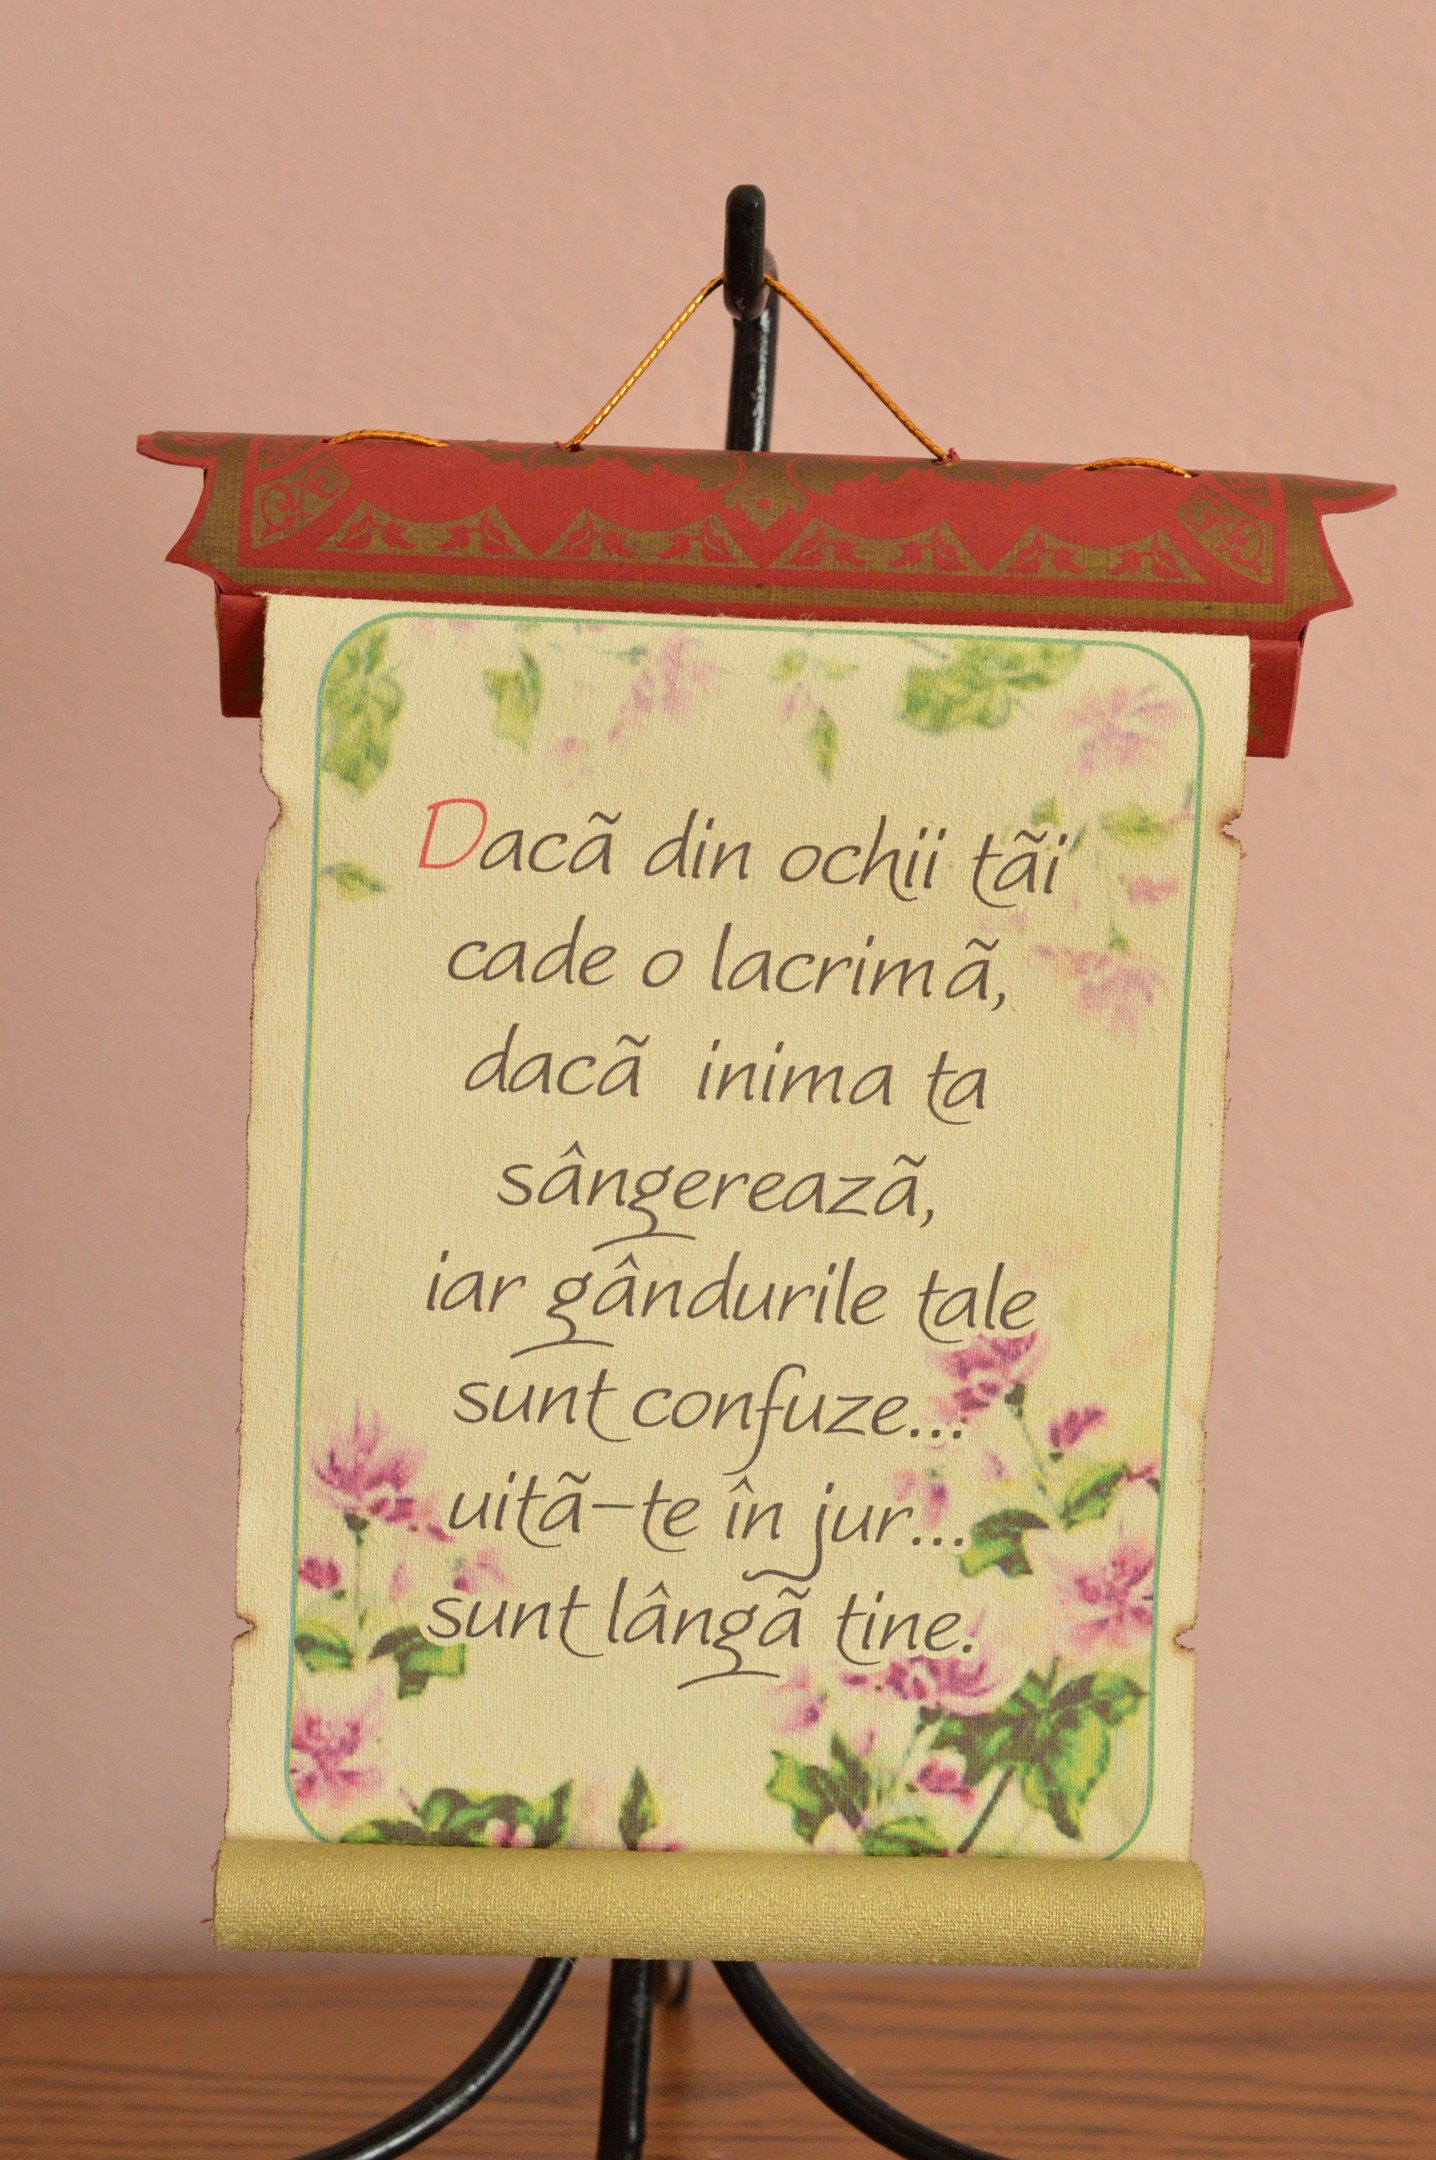 Dacã din ochii tãi
cade o lacrimã,
dacã inima ta
sângereazã,
iar gândurile tale
sunt confuze...
uitã-te în jur...
sunt lângã tine.